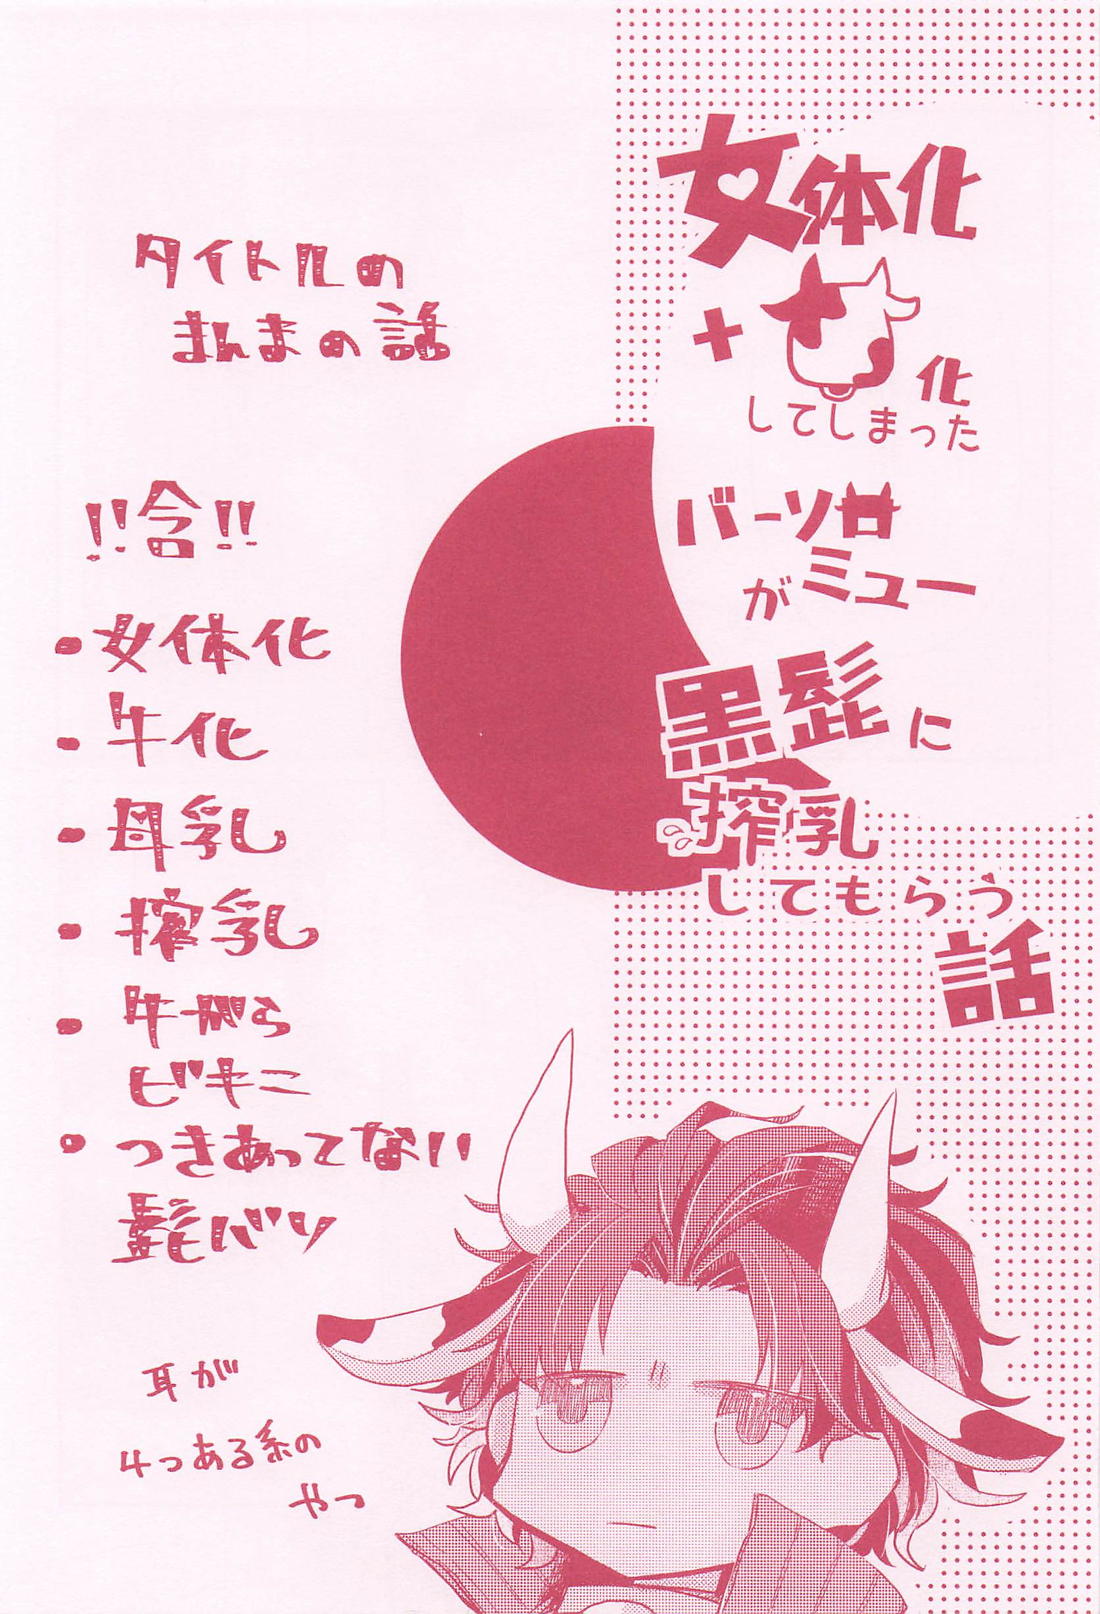 女体化
+
化
してしまった
バーソロ
ミュー
が
黒髭に
搾乳
してもらう
話
タイトルの
まんまの話
!!含!!
・女体化
・牛化
・母乳
・搾乳
・牛がら
ビキニ
・つきあってない
髭バソ
耳が
4つある系の
やつ